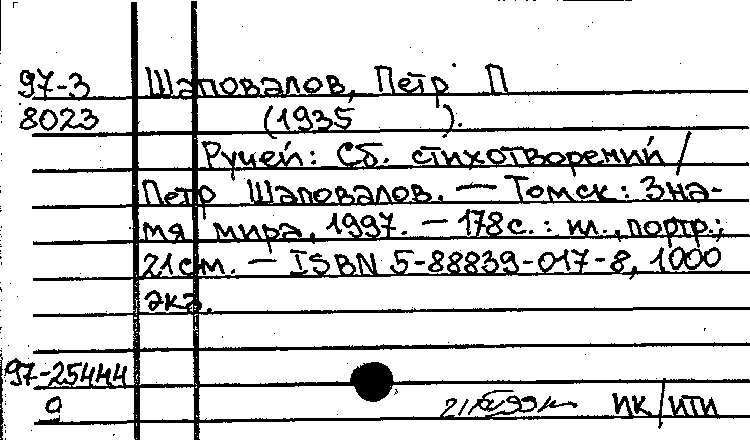 97-3 Шаповалов, Петр П
8023 (1935 ).
Ручей: Сб. стихотворений /
Петр Шаповалов. — Томск: Зна-
мя мира, 1997. — 178 с. : ил., портр.;
21 см. — ISBN 5-88839-017-8, 1000
экз.
97-25444
9
ИК/ИТИ